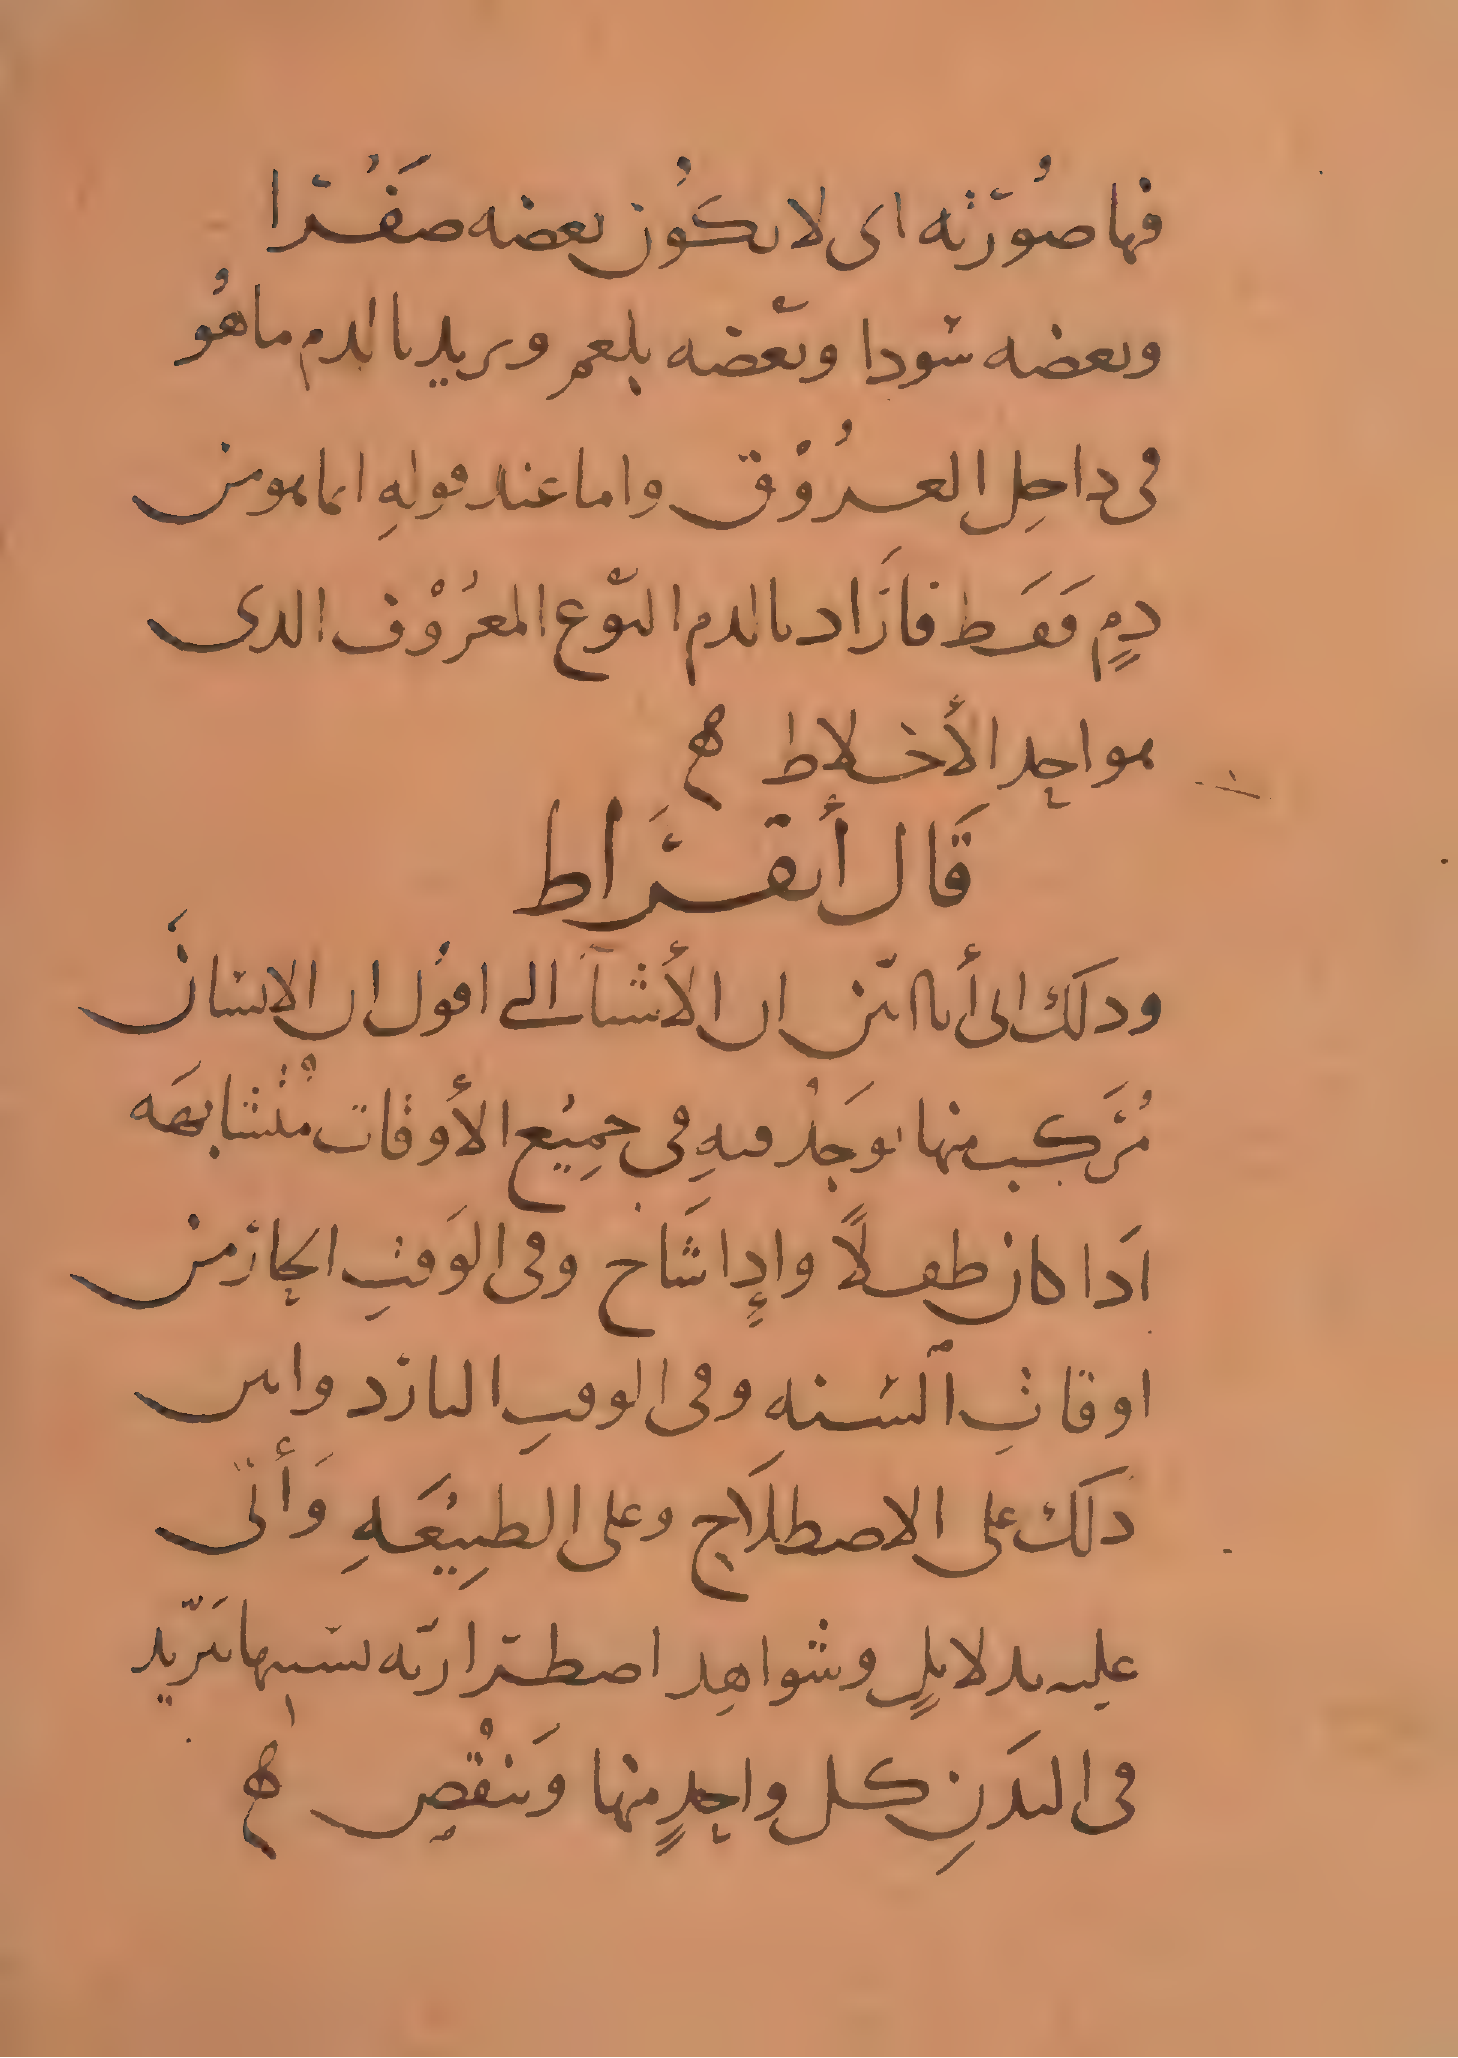 فيها صُورَته اى لا يكُون بعضه صَفْرا
وبعضه سودا وبعضه بلغم ويريد بالدم ما هُو
فى داخِل العرُوْق واما عند قولهِ انما هو من
دمٍ فَقَط فأَرَاد بالدم النوْع المعرُوْف الدى
هو احِد الأخلاط ه
قَال أبقرَاط
ودلَك انى أنا ابين ان الأشيآ التى اقوُل ان الانسانَ
مُرَكب منها يوجَدْ فيهِ فى جميْع الأوقات مُتْشابهَه
ادَا كان طفلاً وادِا شَاخ وفى الوَقتِ الحار من
اوقاتِ السنه وفى الوقتِ البارد وابين
دلَك على الاصطلَاح وعلى الطبِيْعَهِ وَأتى
عليه بدلايلٍ وشواهِد اصطراريه لسببها يَزيد
فى البدَنِ كل واحِدٍ منها وَينقْص ه